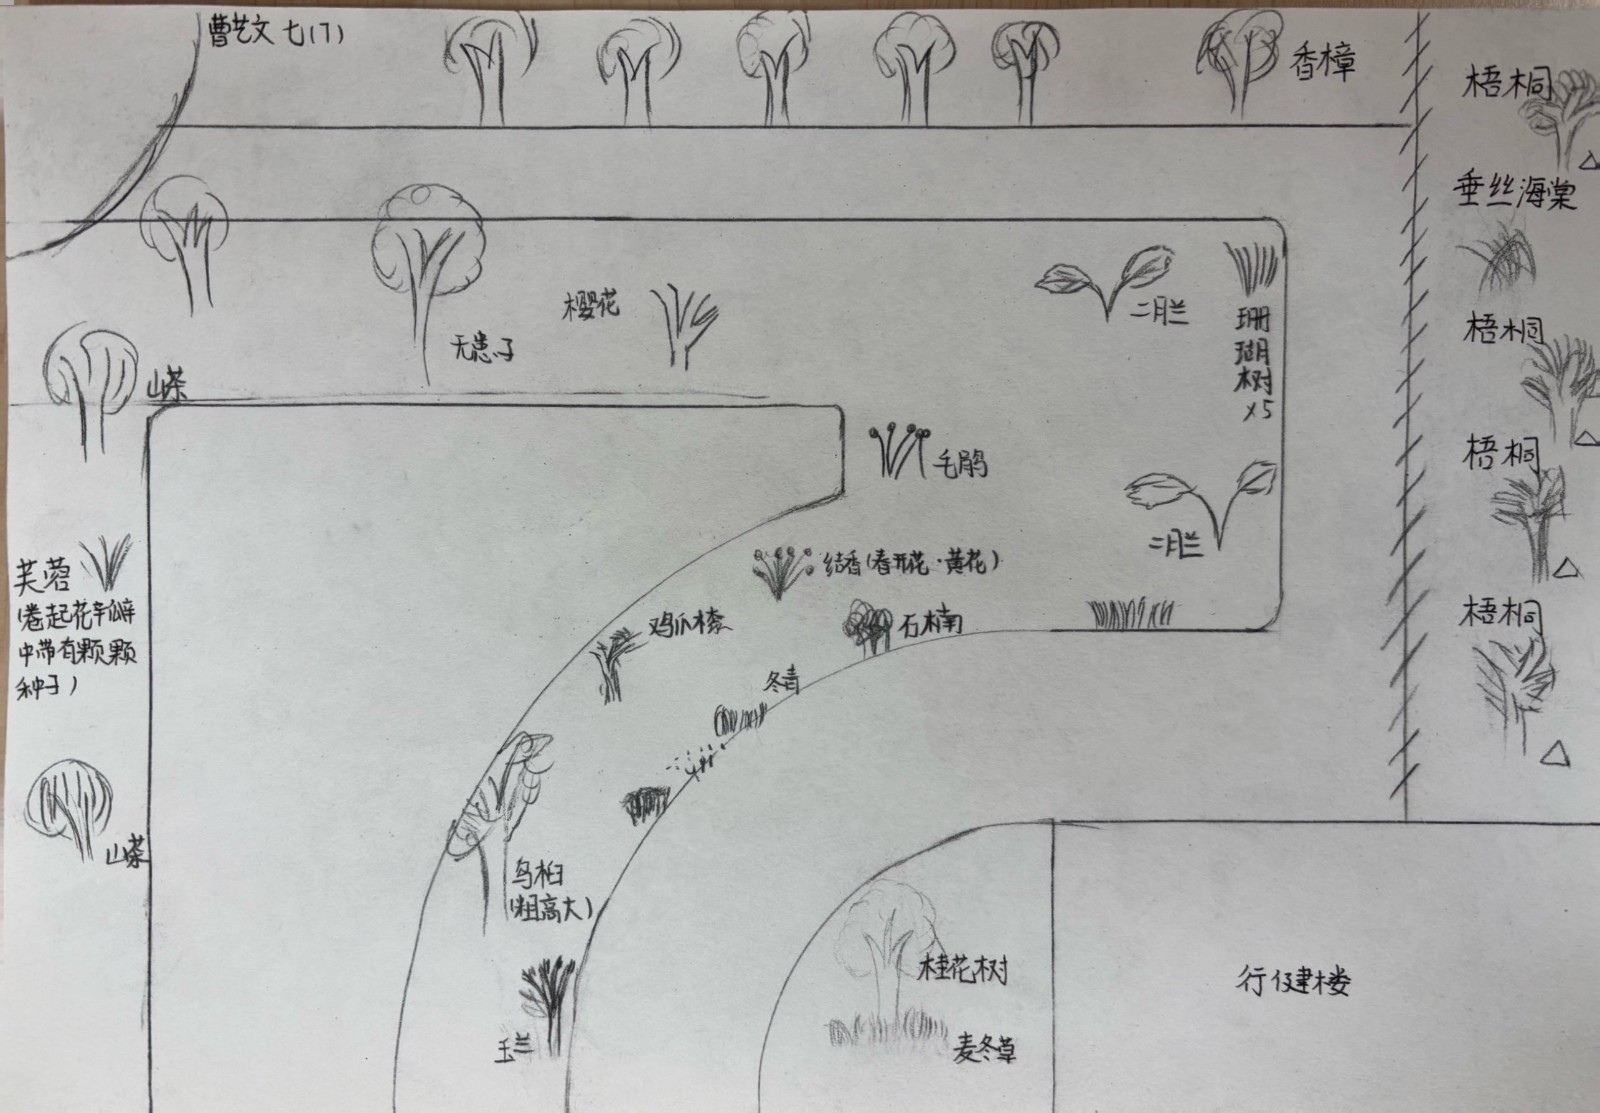 曹艺文 七(7)
香樟
梧桐
垂丝海棠
梧桐
梧桐
梧桐
樱花
无患子
二月兰
珊
瑚
树
x5
山茶
毛鹃
二月兰
结香(春开花·黄花)
芙蓉
(卷起花车瓣
中带有颗颗
种子)
鸡爪槭
石楠
冬青
山茶
乌桕
(粗高大)
玉兰
桂花树
麦冬草
行健楼